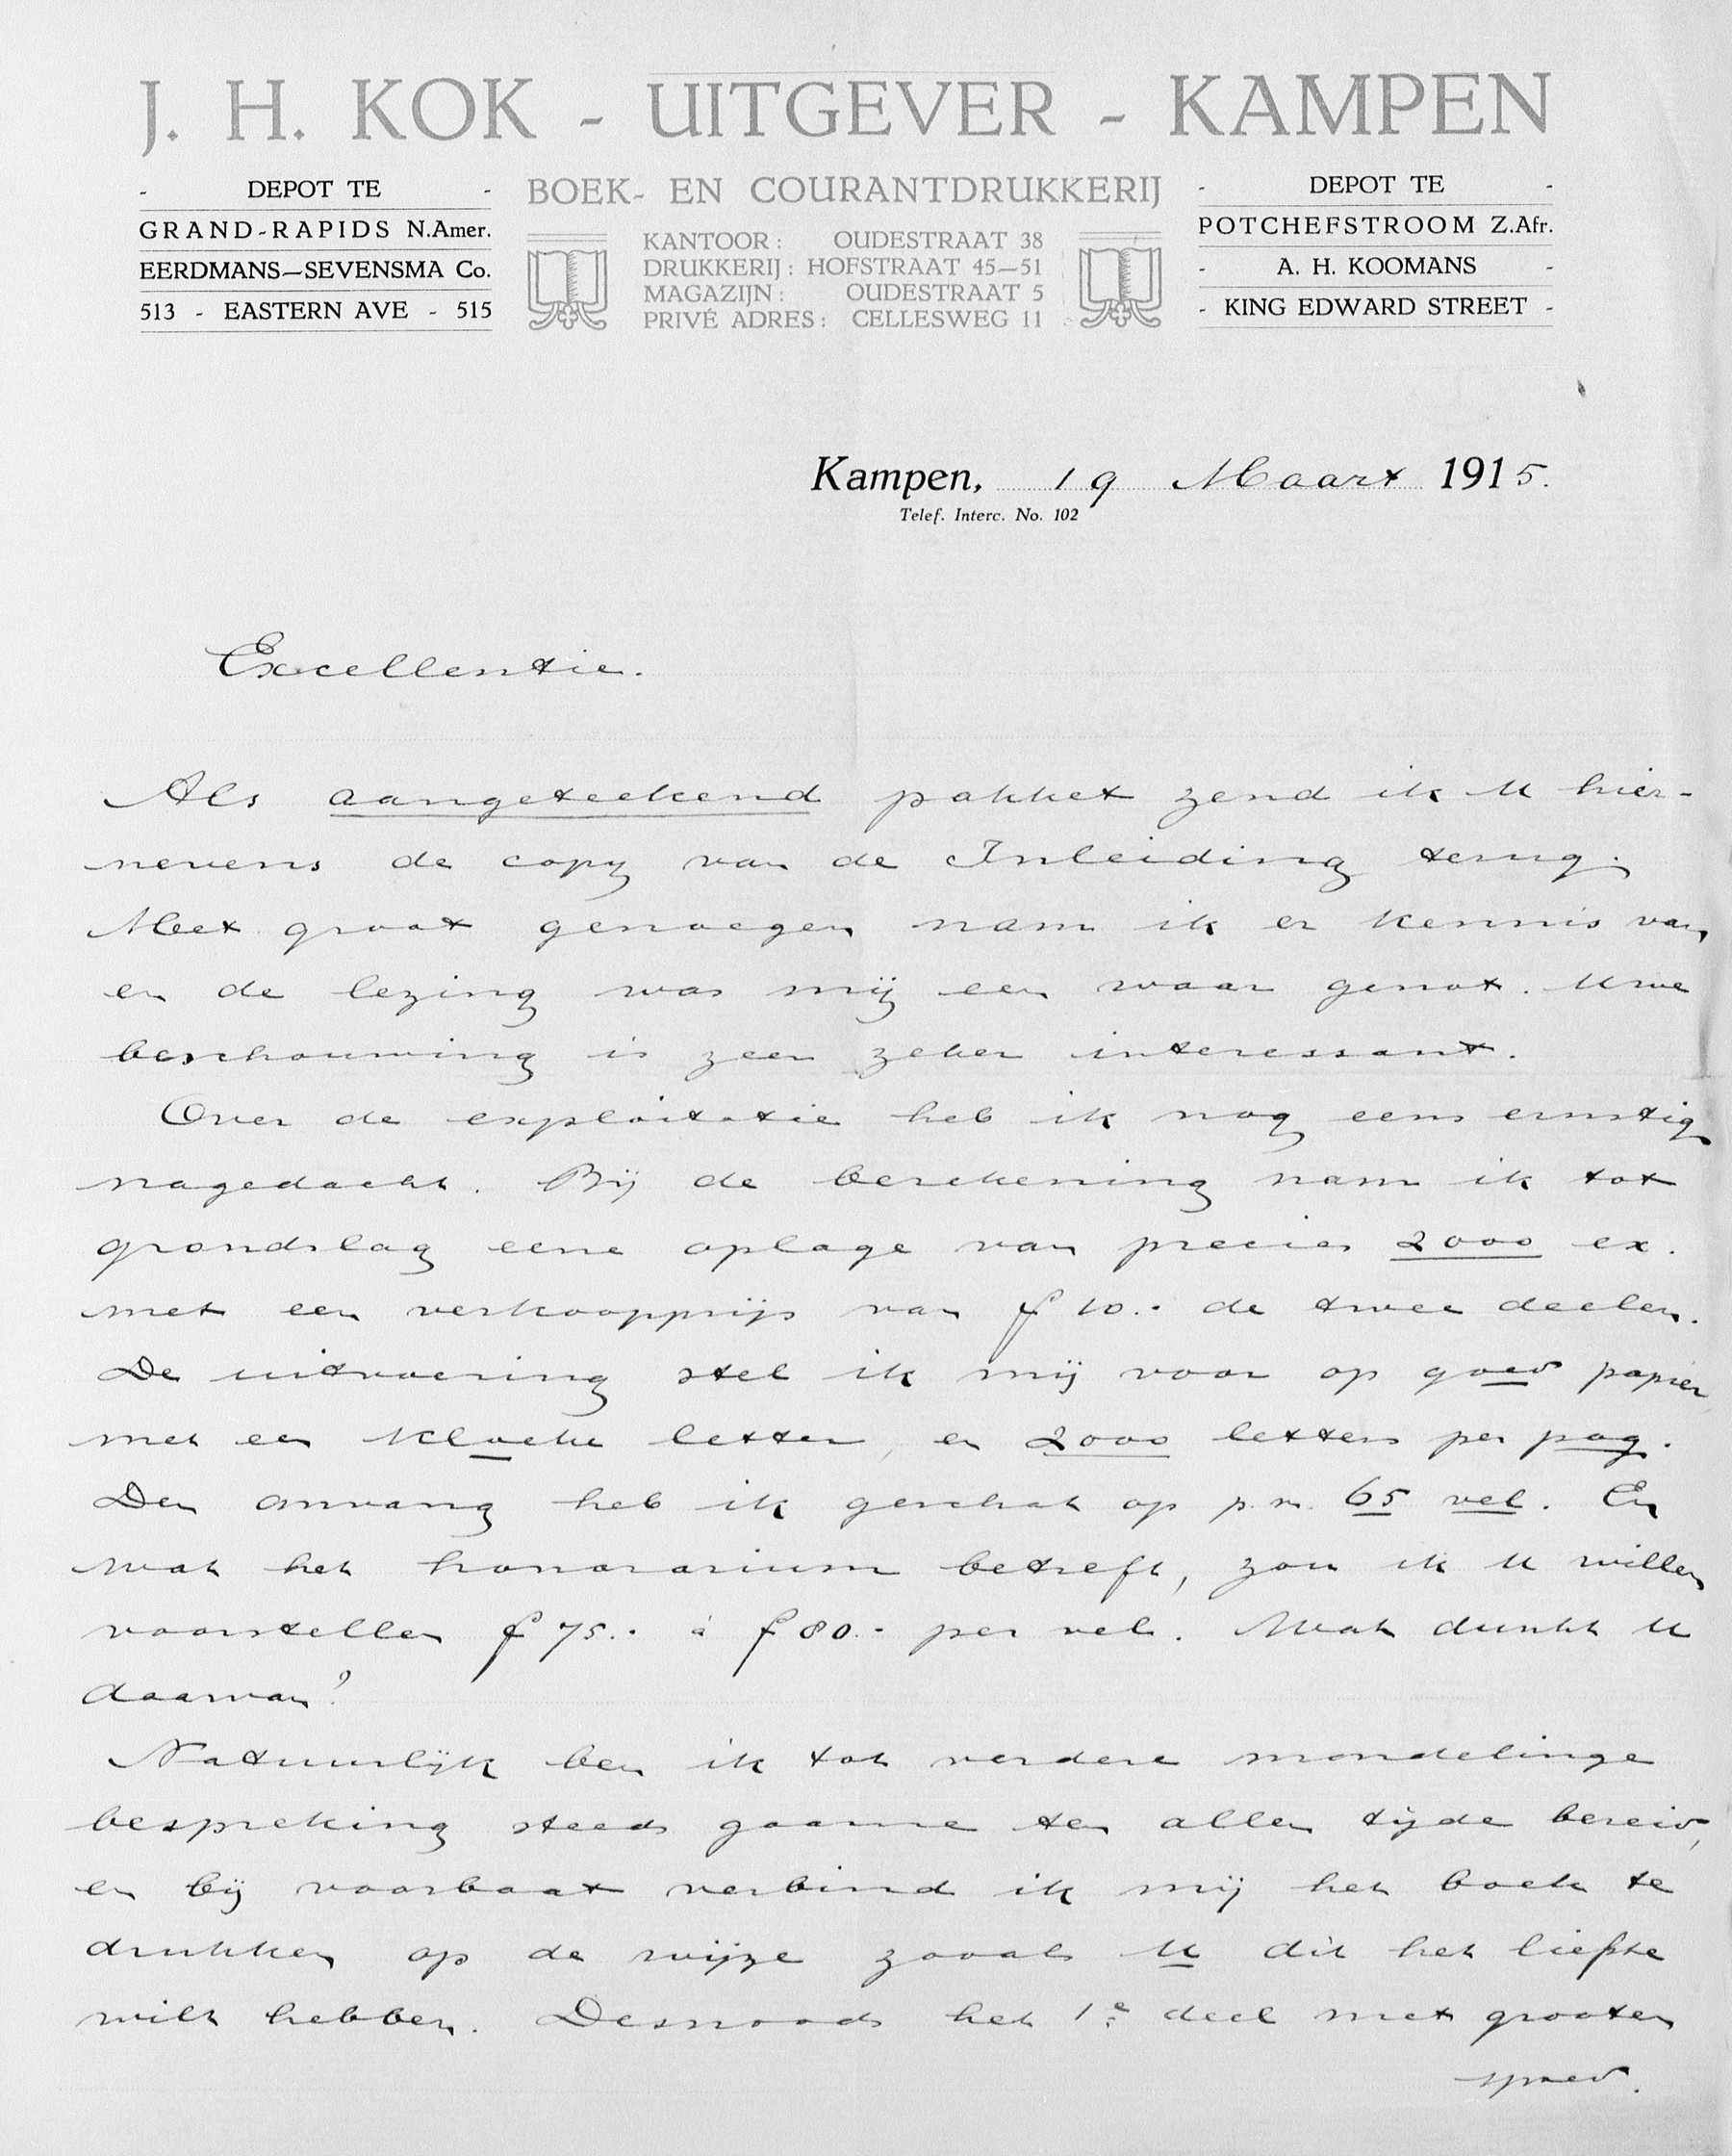 J. H. KOK - UITGEVER - KAMPEN
- DEPOT TE -
GRAND-RAPIDS N.Amer.
EERDMANS—SEVENSMA Co.
513 - EASTERN AVE - 515
BOEK- EN COURANTDRUKKERIJ
KANTOOR: OUDESTRAAT 38
DRUKKERIJ: HOFSTRAAT 45—51
MAGAZIJN: OUDESTRAAT 5
PRIVÉ ADRES: CELLESWEG 11
- DEPOT TE -
POTCHEFSTROOM Z.Afr.
- A. H. KOOMANS -
- KING EDWARD STREET -
Kampen, 19 Maart 1915.
Telef. Interc. No. 102
Excellentie.
Als aangeteekend pakket zend ik U hier-
nevens de copy van de Inleiding terug.
Met groot genoegen nam ik er kennis van
en de lezing was mij een waar genot. Uwe
beschouwing is zeer zeker interessant.
Over de exploitatie heb ik nog eens ernstig
nagedacht. Bij de berekening nam ik tot
grondslag eene oplage van precies 2000 ex.
met een verkoopprijs van f 10.- de twee deelen.
De uitvoering stel ik mij voor op goed papier
met een kloeke letter, en 2000 letters per pag.
Den omvang heb ik geschat op p.m. 65 vel. En
wat het honorarium betreft, zou ik U willen
voorstellen f 75.- à f 80.- per vel. Wat dunkt U
daarvan?
Natuurlijk ben ik tot verdere mondelinge
bespreking steeds gaarne ten allen tijde bereid,
en bij voorbaat verbind ik mij het boek te
drukken op de wijze zooals U dit het liefste
wilt hebben. Desnoods het 1e deel met grooten
spoed.